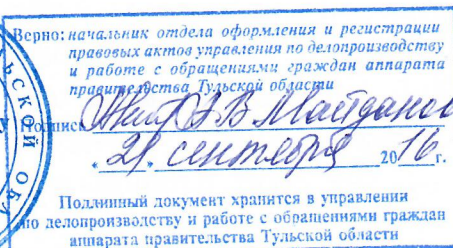 Верно: начальник отдела оформления и регистрации
правовых актов управления по делопроизводству
и работе с обращениями граждан аппарата
правительства Тульской области
Подпись Э.В. Майданов
" 21 " сентября 2016 г.
Подлинный документ хранится в управлении
по делопроизводству и работе с обращениями граждан
аппарата правительства Тульской области
ЬСКОЙ ОБЛА